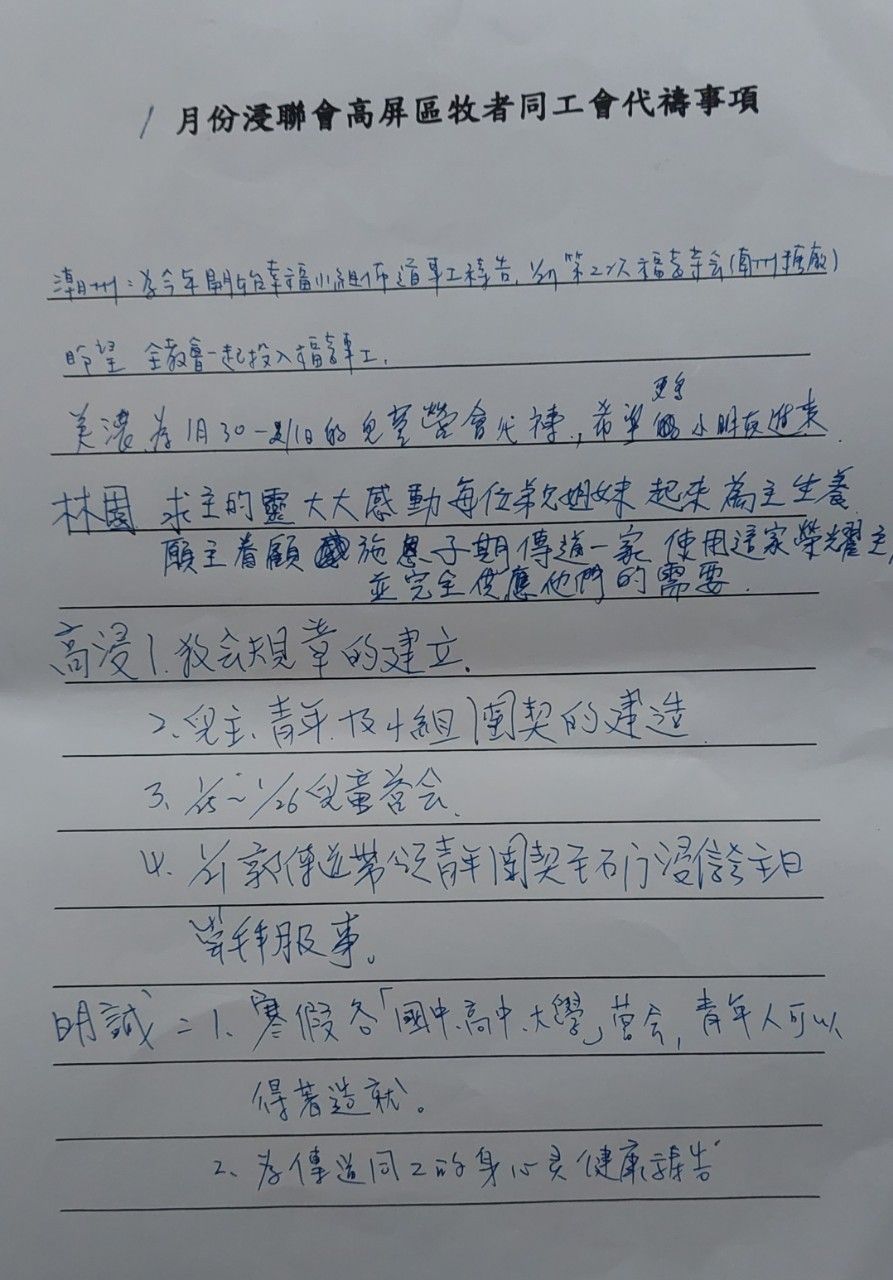 1 月份浸聯會高屏區牧者同工會代禱事項
潮州：為今年開始幸福小組佈道事工禱告, 第2次福音茶会(南州糖廠)
盼望 全教會一起投入福音事工.
更多
美濃 為1月30-2/1日的兒童營會代禱, 希望 小朋友進來.
林園 求主的靈大大感動每位弟兄姐妹起來為主生養.
願主眷顧 施恩子期傳道一家 使用這家榮耀主,
並完全供應他們的需要.
高浸 1. 教会規章的建立.
2、兒主、青年及小組團契的建造.
3、1/25~1/26兒童营会.
4. 郭傳道帶領青年團契至石行浸信会主日
崇拜服事。
明誠：1、寒假各「國中、高中、大學」营会, 青年人可以
得著造就。
2、為傳道同工的身心灵健康禱告